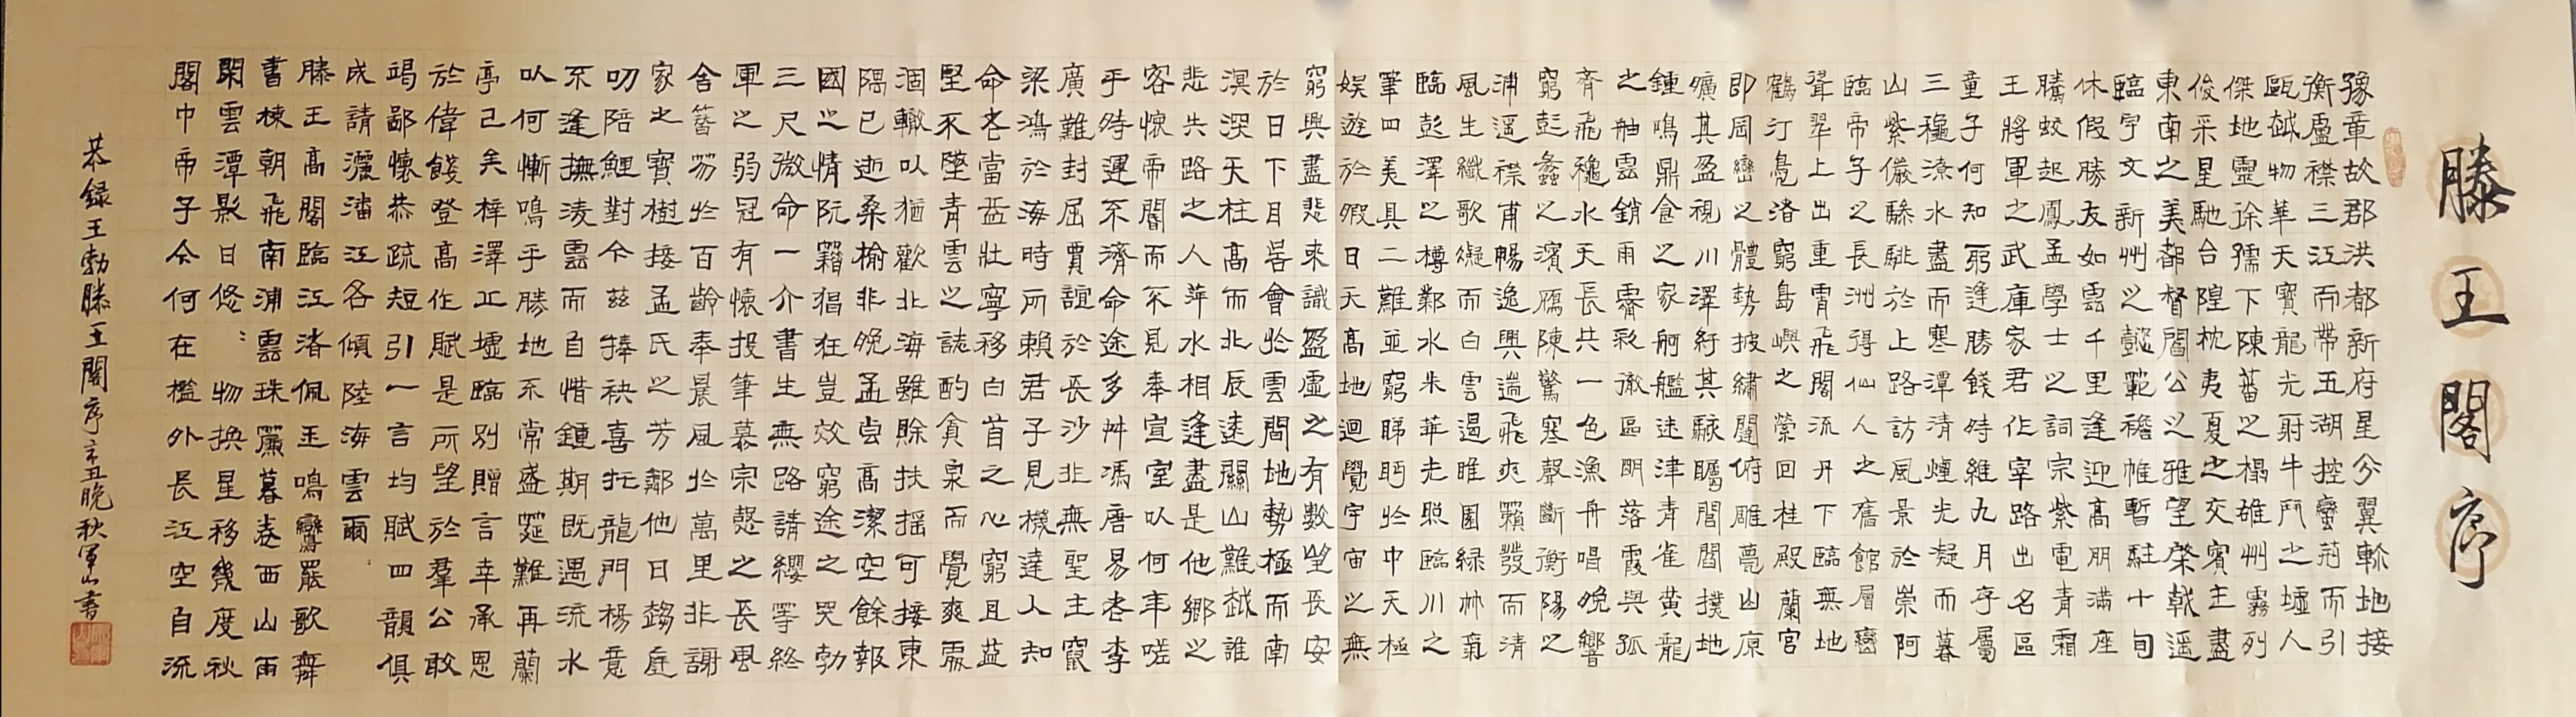 滕王閣序
豫章故郡洪都新府星分翼軫地接
衡廬襟三江而帶五湖控蠻荊而引
甌越物華天寶龍光射牛鬥之墟人
傑地靈徐孺下陳蕃之榻雄州霧列
俊采星馳台隍枕夷夏之交賓主盡
東南之美都督閻公之雅望棨戟遥
臨宇文新州之懿範襜帷暫駐十旬
休假勝友如雲千里逢迎高朋滿座
騰蛟起鳳孟學士之詞宗紫電青霜
王將軍之武庫家君作宰路出名區
童子何知躬逢勝餞時維九月序屬
三秋潦水盡而寒潭清煙光凝而暮
山紫儼驂騑於上路訪風景於崇阿
臨帝子之長洲得仙人之舊館層巒
聳翠上出重霄飛閣流丹下臨無地
鶴汀鳧渚窮島嶼之縈回桂殿蘭宮
即岡巒之體勢披繡闥俯雕甍山原
曠其盈視川澤紆其駭矚閭閻撲地
鍾鳴鼎食之家舸艦迷津青雀黃龍
之舳雲銷雨霽彩徹區明落霞與孤
齊飛秋水天長共一色漁舟唱晚響
窮彭蠡之濱雁陳驚寒聲斷衡陽之
浦遥襟甫暢逸興遄飛爽籟發而清
風生纖歌凝而白雲遏睢園綠竹氣
臨彭澤之樽鄴水朱華光照臨川之
筆四美具二難並窮睇眄於中天極
娛遊於暇日天高地迥覺宇宙之無
窮興盡悲來識盈虛之有數望長安
於日下目吳會於雲間地勢極而南
溟深天柱高而北辰遠關山難越誰
悲失路之人萍水相逢盡是他鄉之
客懷帝閽而不見奉宣室以何年嗟
乎時運不濟命途多舛馮唐易老李
廣難封屈賈誼於長沙非無聖主竄
梁鴻於海時所賴君子見機達人知
命老當益壯寧移白首之心窮且益
堅不墜青雲之誌酌貪泉而覺爽處
涸轍以猶歡北海雖賒扶摇可接東
隅已逝桑榆非晚孟尝高潔空餘報
國之情阮籍猖狂豈效窮途之哭勃
三尺微命一介書生無路請纓等終
軍之弱冠有懷投筆慕宗愨之長風
舍簪笏於百齡奉晨風於萬里非謝
家之寶樹接孟氏之芳鄰他日趨庭
叨陪鯉對今兹捧袂喜托龍門楊意
不逢撫淩雲而自惜鍾期既遇流水
以何慚嗚乎勝地不常盛筵難再蘭
亭已矣梓澤丘墟臨別贈言幸承恩
於偉餞登高作賦是所望於羣公敢
竭鄙懷恭疏短引一言均賦四韻俱
成請灑潘江各傾陸海雲爾
滕王高閣臨江渚佩玉鳴鸞罷歌舞
畫棟朝飛南浦雲珠簾暮卷西山雨
閑雲潭影日悠:物换星移幾度秋
閣中帝子今何在檻外長江空自流
恭録王勃滕王閣序辛丑晚秋軍山書